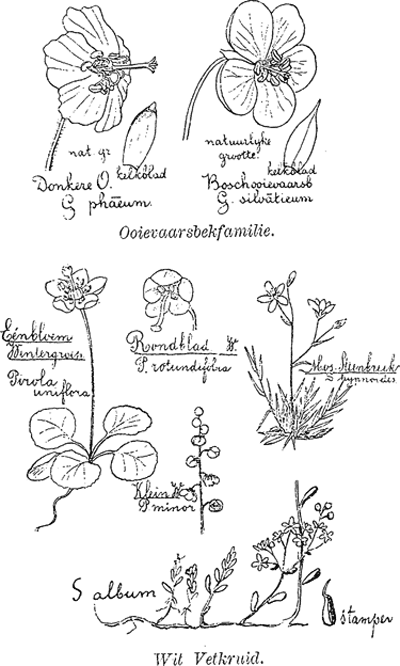 nat. gr
kelkblad
Donkere O.
G phaeum.
natuurlyke
grootte.
kelkblad
Boschooievaarsb
G. silvaticum
Ooievaarsbekfamilie.
Eénbloem
Wintergroen
Pirola
uniflora
Rondblad W.
P. rotundifolia
Mos-Steenbreek
S hypnoides.
Klein W
P minor
S album
stamper
Wit Vetkruid.